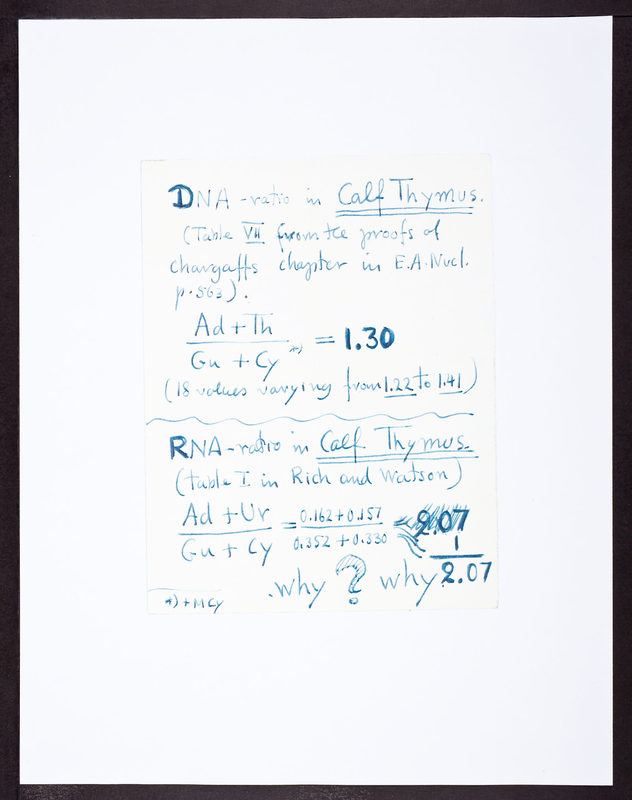 DNA-ratio in Calf Thymus.
(Table VII from the proofs of
chargaffs chapter in E.A. Nucl.
p. 563).
Ad + Th
Gu + Cy *) = 1.30
(18 values varying from 1.22 to 1.41)
RNA-ratio in Calf Thymus.
(table I in Rich and Watson)
Ad + Ur = 0.162 + 0.157 = 2.07
Gu + Cy 0.352 + 0.330 1
2.07
. why ? why
*) + MCy